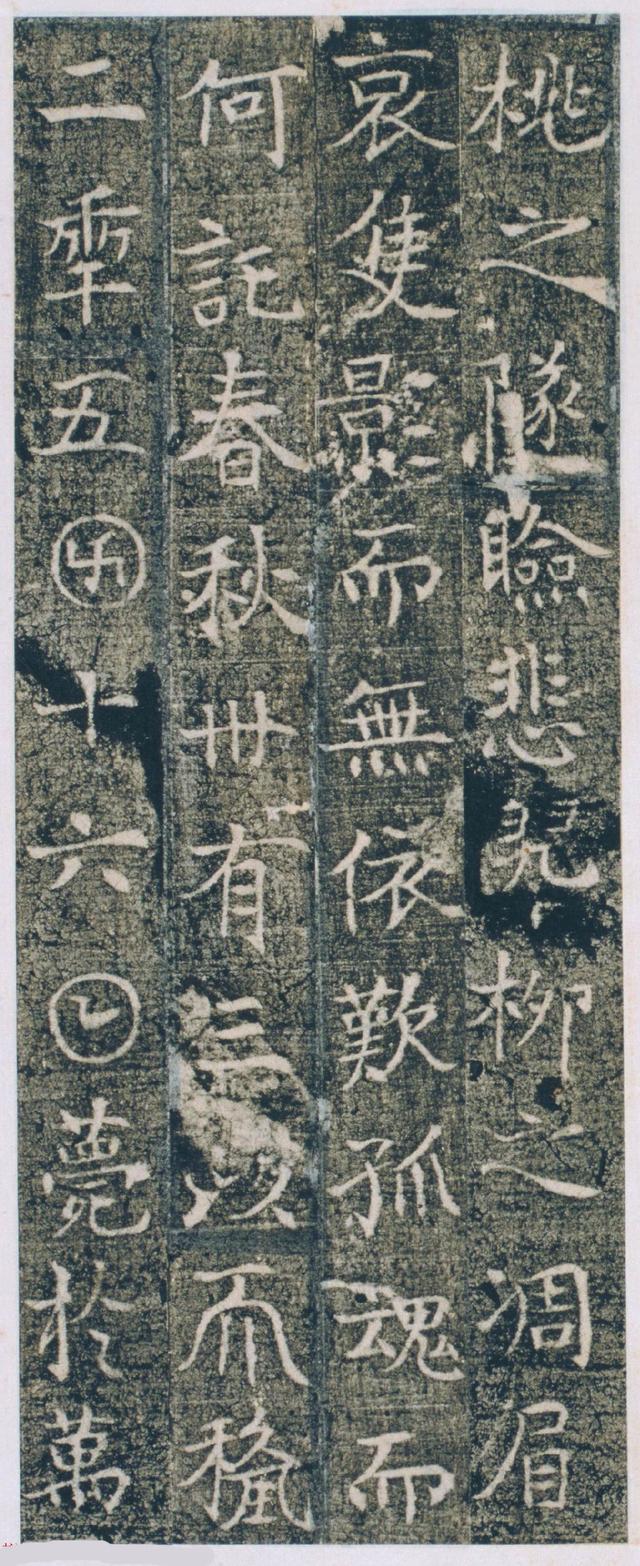 桃之隊瞼悲翠柳之凋眉
哀隻影而無依歎孤魂而
何託春秋卌有三以𠀑𥠢
二𠡦五𠥱十六𡆠薨於萬